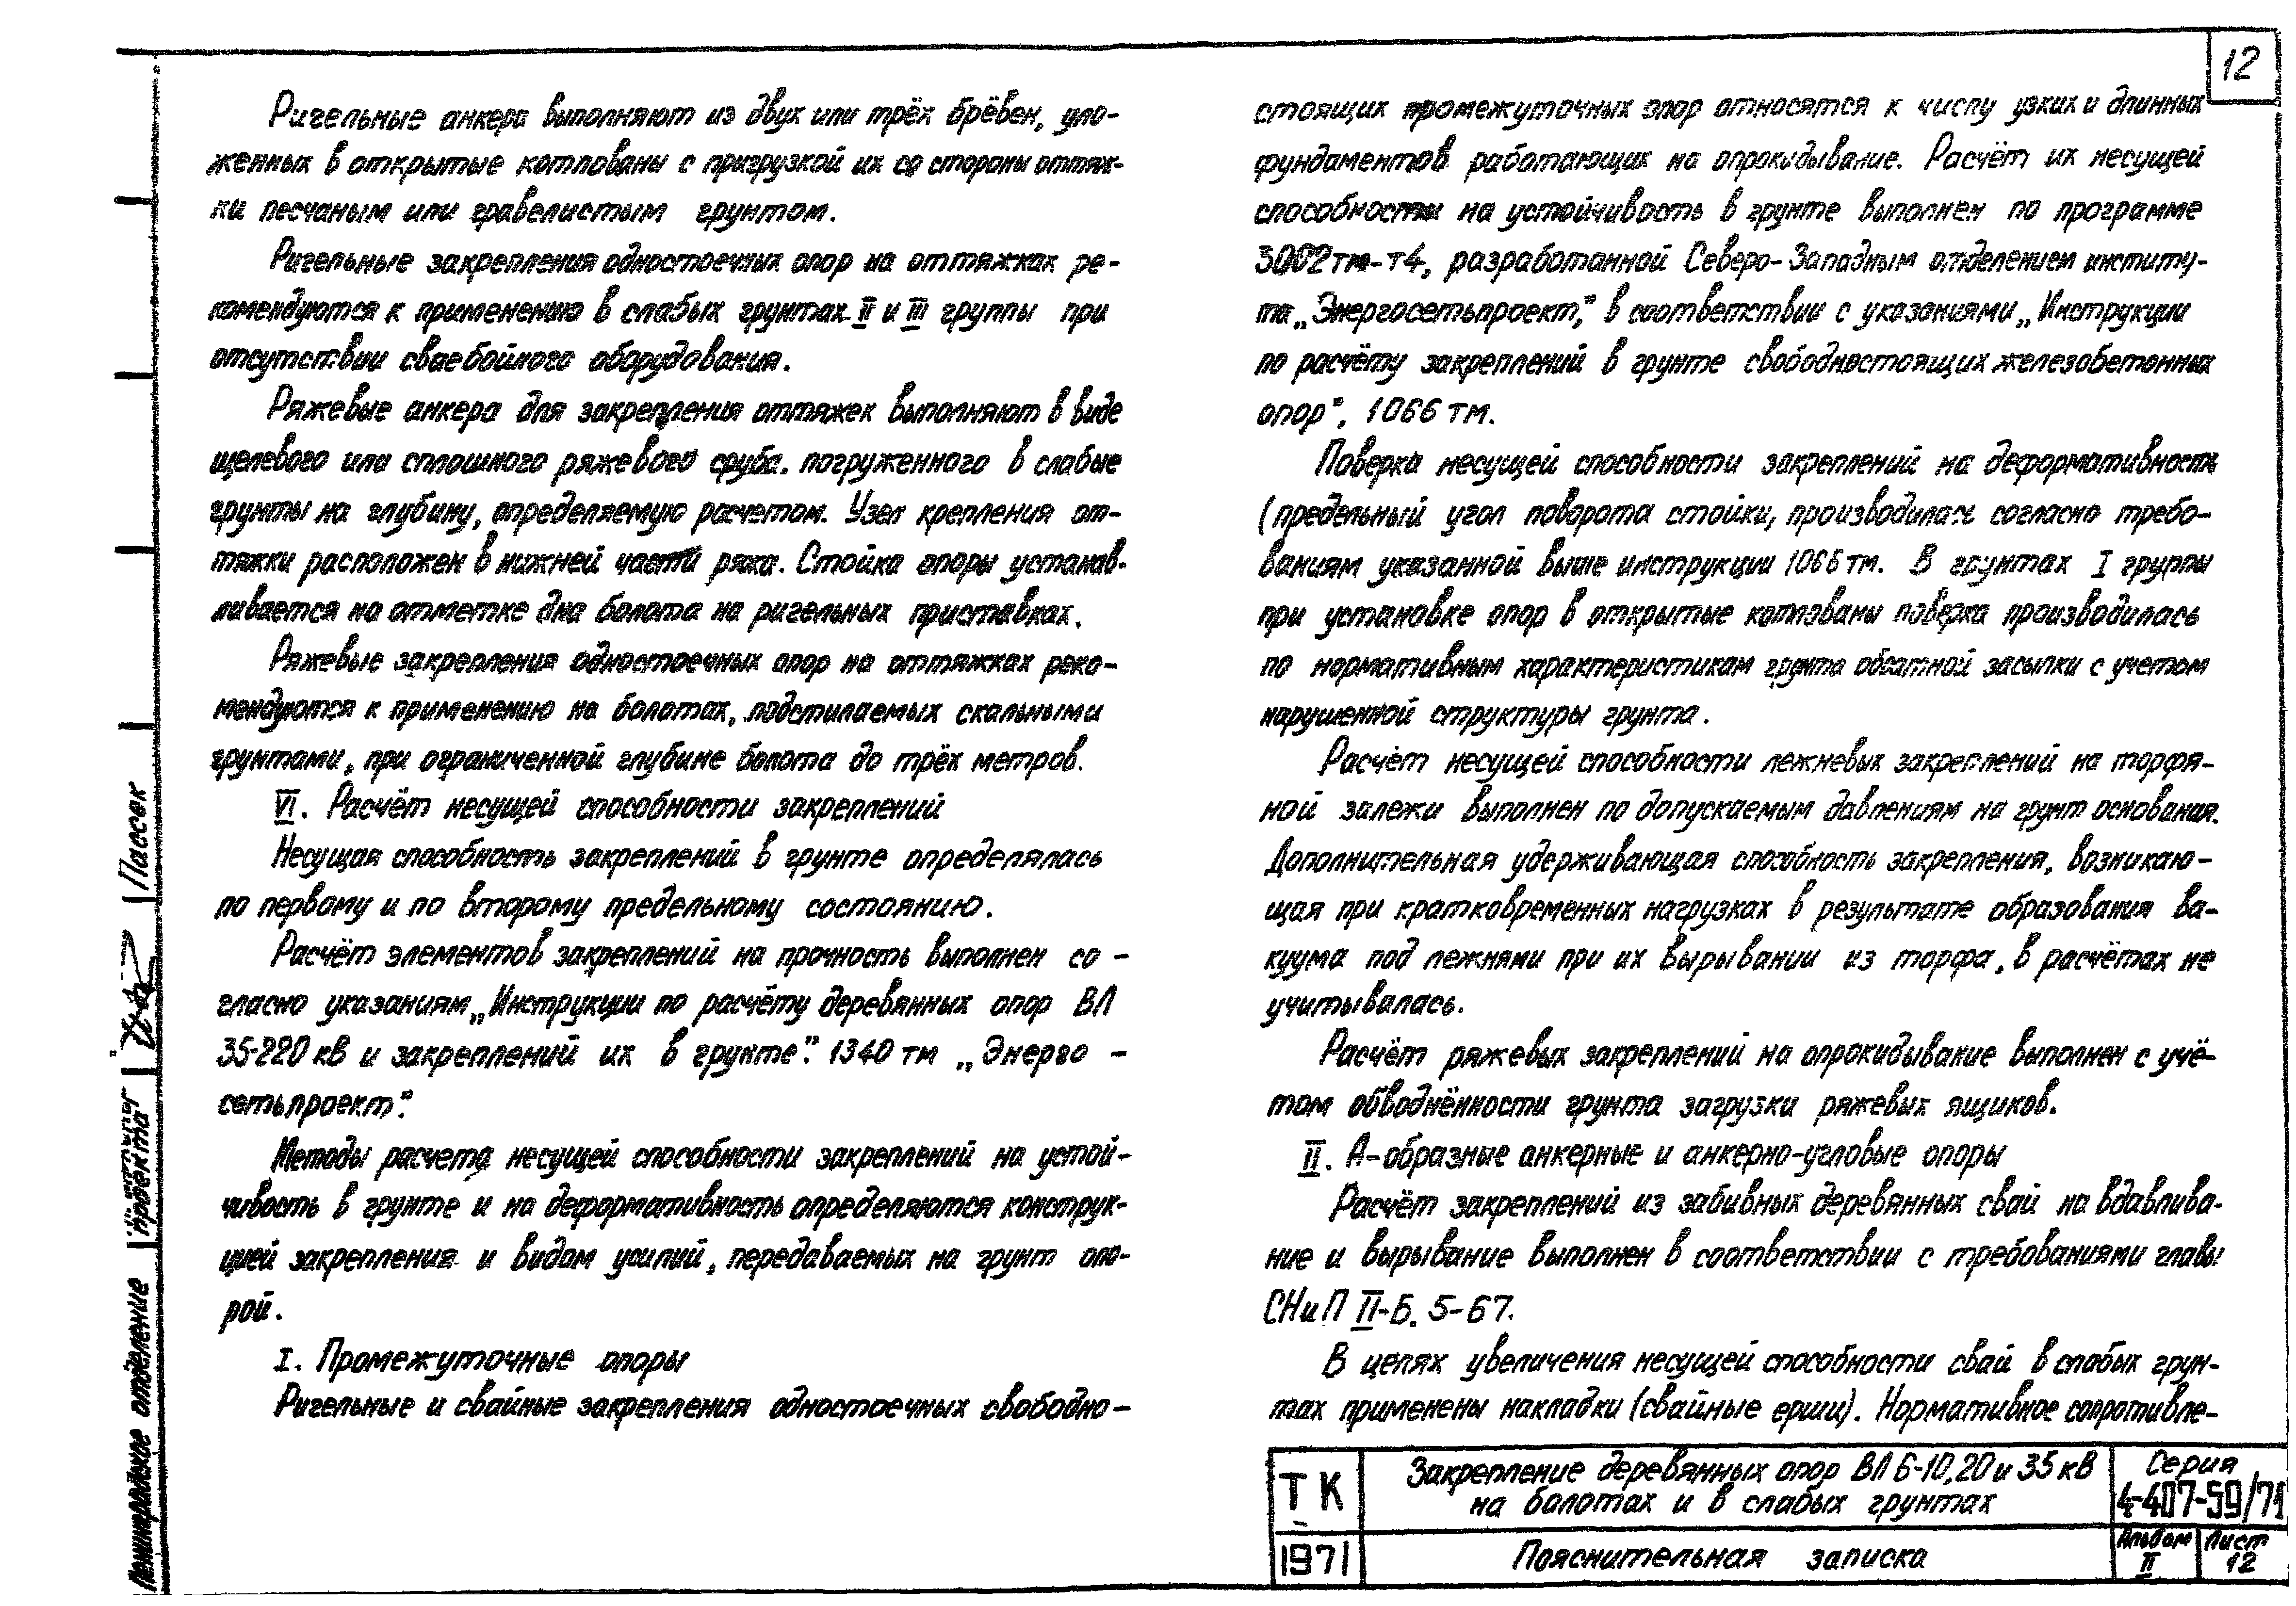 12
Ригельные анкера выполняют из двух или трёх брёвен, уло-
женных в открытые котлованы с пригрузкой их со стороны оттяж-
ки песчаным или гравелистым грунтом.
Ригельные закрепления одностоечных опор на оттяжках ре-
комендуются к применению в слабых грунтах II и III группы при
отсутствии сваебойного оборудования.
Ряжевые анкера для закрепления оттяжек выполняют в виде
щелевого или сплошного ряжевого сруба. погруженного в слабые
грунты на глубину, определяемую расчетом. Узел крепления от-
тяжки расположен в нижней части ряжа. Стойка опоры устанав-
ливается на отметке дна болота на ригельных приставках.
Ряжевые закрепления одностоечных опор на оттяжках реко-
мендуются к применению на болотах, подстилаемых скальными
грунтами, при ограниченной глубине болота до трёх метров.
VI. Расчёт несущей способности закреплений
Несущая способность закреплений в грунте определялась
по первому и по второму предельному состоянию.
Расчёт элементов закреплений на прочность выполнен со-
гласно указаниям „Инструкции по расчёту деревянных опор ВЛ
35-220 кВ и закреплений их в грунте". 1340 тм „Энерго-
сетьпроект".
Методы расчета несущей способности закреплений на устой-
чивость в грунте и на деформативность определяются конструк-
цией закрепления и видом усилий, передаваемых на грунт опо-
рой.
I. Промежуточные опоры
Ригельные и свайные закрепления одностоечных свободно-
стоящих промежуточных опор относятся к числу узких и длинных
фундаментов работающих на опрокидывание. Расчёт их несущей
способности на устойчивость в грунте выполнен по программе
3002тм-т4, разработанной Северо-Западным отделением институ-
та „Энергосетьпроект", в соответствии с указаниями „Инструкции
по расчёту закреплений в грунте свободностоящих железобетонных
опор", 1066 тм.
Поверка несущей способности закреплений на деформативность
(предельный угол поворота стойки, производилась согласно требо-
ваниям указанной выше инструкции 1066 тм. В грунтах I группы
при установке опор в открытые котлованы поверка производилась
по нормативным характеристикам грунта обратной засыпки с учетом
нарушенной структуры грунта.
Расчёт несущей способности лежневых закреплений на торфя-
ной залежи выполнен по допускаемым давлениям на грунт основания.
Дополнительная удерживающая способность закрепления, возникаю-
щая при кратковременных нагрузках в результате образования ва-
куума под лежнями при их вырывании из торфа, в расчётах не
учитывалась.
Расчёт ряжевых закреплений на опрокидывание выполнен с учё-
том обводнённости грунта загрузки ряжевых ящиков.
II. А-образные анкерные и анкерно-угловые опоры
Расчёт закреплений из забивных деревянных свай на вдавлива-
ние и вырывание выполнен в соответствии с требованиями главы
СНиП II-Б. 5-67.
В целях увеличения несущей способности свай в слабых грун-
тах применены накладки (свайные ерши). Нормативное сопротивле-
ТК
1971
Закрепление деревянных опор ВЛ 6-10, 20 и 35 кВ
на болотах и в слабых грунтах
Пояснительная записка
Серия
4-407-59/71
Альбом
II
Лист
12
Ленинградское отделение
проекта
Пассек